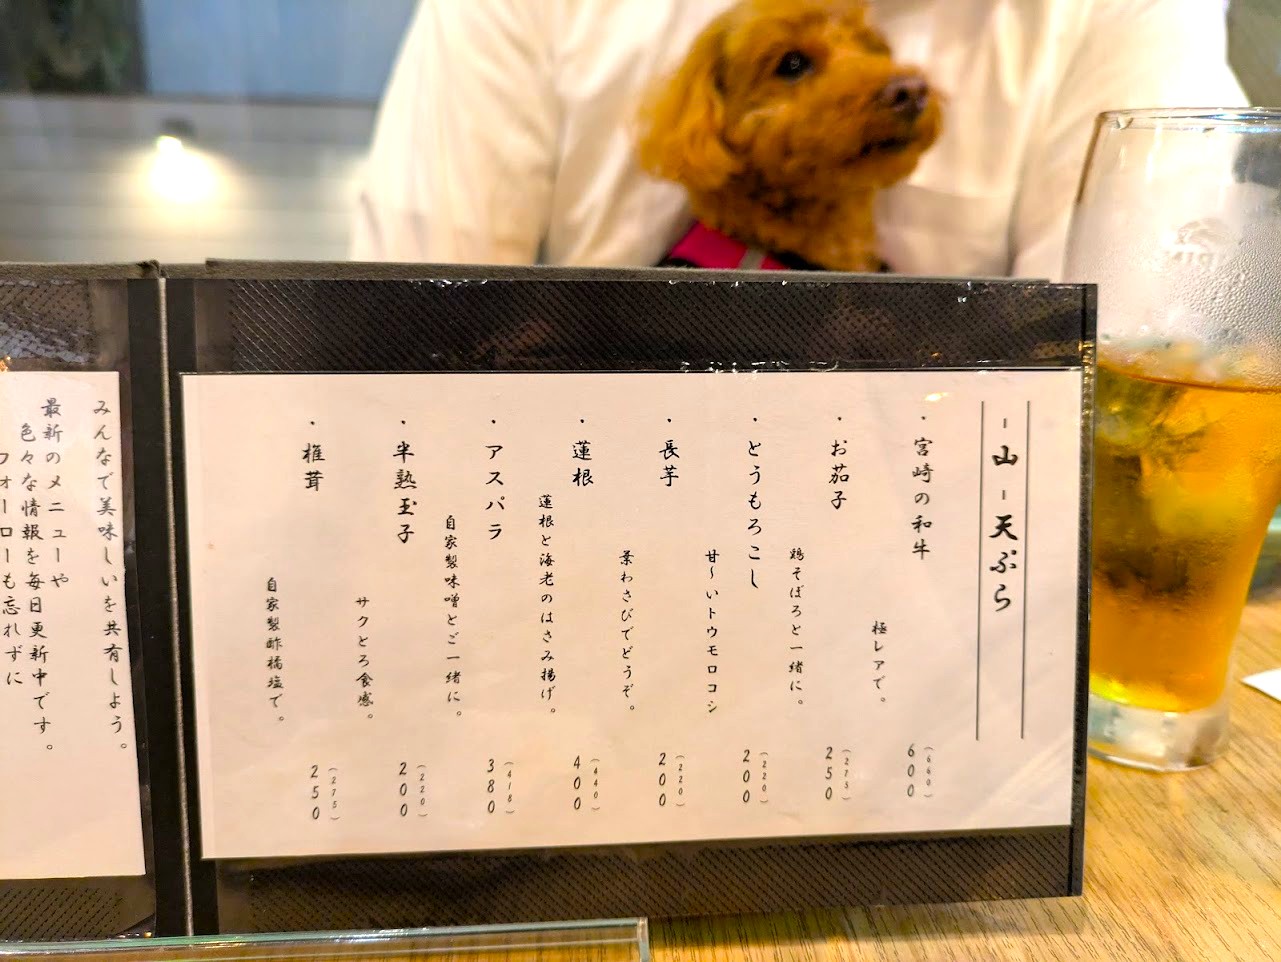 -山-天ぷら
・宮崎の和牛
極レアで。
(660)
600
・お茄子
鶏そぼろと一緒に。
(275)
250
・とうもろこし
甘〜いトウモロコシ
(220)
200
・長芋
葉わさびでどうぞ。
(220)
200
・蓮根
蓮根と海老のはさみ揚げ。
(440)
400
・アスパラ
自家製味噌とご一緒に。
(418)
380
・半熟玉子
サクとろ食感。
(220)
200
・椎茸
自家製酢橘塩で。
(275)
250
みんなで美味しいを共有しよう。
最新のメニューや
色々な情報を毎日更新中です。
フォローも忘れずに